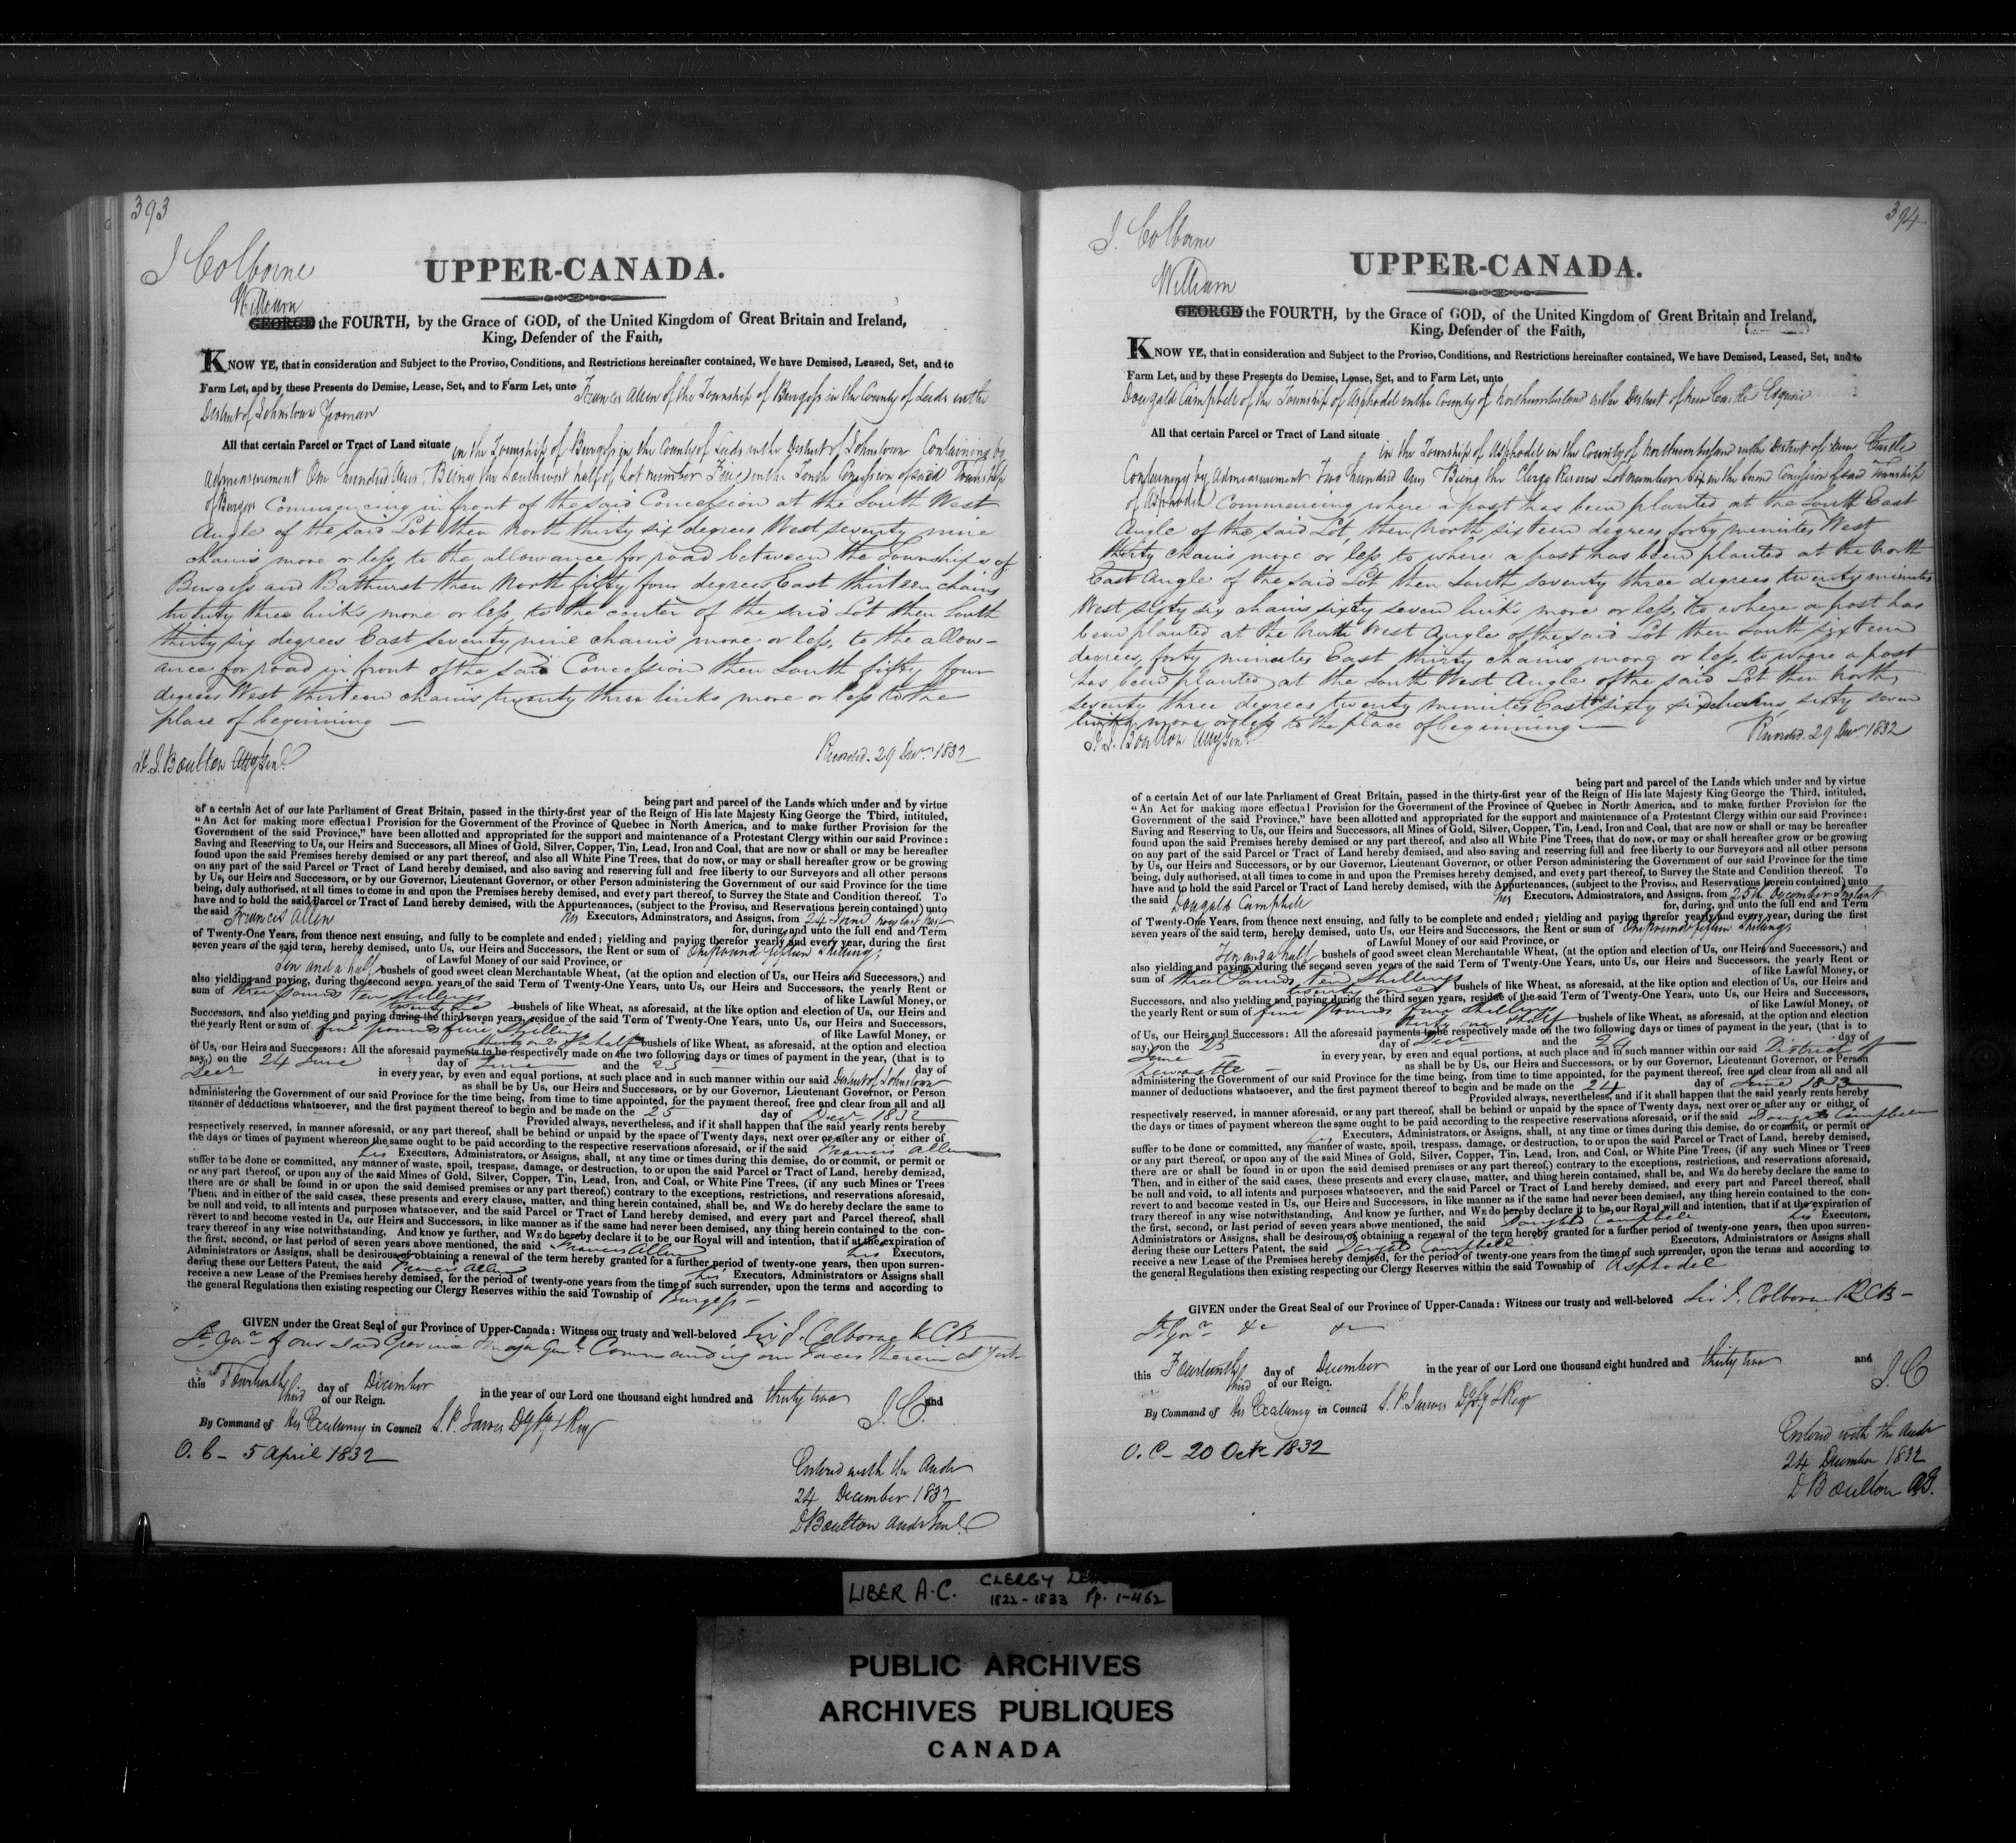 393
J Colborne
UPPER-CANADA.
William
GEORGE the FOURTH, by the Grace of GOD, of the United Kingdom of Great Britain and Ireland,
King, Defender of the Faith,
KNOW YE, that in consideration and Subject to the Proviso, Conditions, and Restrictions hereinafter contained, We have Demised, Leased, Set, and to
Farm Let, and by these Presents do Demise, Lease, Set, and to Farm Let, unto Francis Allen of the Township of Burgess in the County of Leeds in the
District of Johnstown Yeoman
All that certain Parcel or Tract of Land situate in the Township of Burgess in the County of Leeds in the District of Johnstown Containing by
Admeasurement One hundred Acres, Being the Southwest half of Lot number Five in the Tenth Concession of said Township
of Burgess Commencing in front of the said Concession at the South West
Angle of the said Lot then North thirty six degrees West seventy nine
chains more or less to the allowance for road between the Townships of
Burgess and Bathurst then North fifty four degrees East thirteen chains
twenty three links more or less to the center of the said Lot then South
thirty six degrees East seventy nine chains more or less, to the allow-
ance for road in front of the said Concession then South fifty four
degrees West thirteen chains twenty three links more or less to the
place of beginning —
H. J. Boulton Atty Genl.
Recorded. 29 Decr 1832
being part and parcel of the Lands which under and by virtue
of a certain Act of our late Parliament of Great Britain, passed in the thirty-first year of the Reign of His late Majesty King George the Third, intituled,
"An Act for making more effectual Provision for the Government of the Province of Quebec in North America, and to make further Provision for the
Government of the said Province," have been allotted and appropriated for the support and maintenance of a Protestant Clergy within our said Province:
Saving and Reserving to Us, our Heirs and Successors, all Mines of Gold, Silver, Copper, Tin, Lead, Iron and Coal, that are now or shall or may be hereafter
found upon the said Premises hereby demised or any part thereof, and also all White Pine Trees, that do now, or may or shall hereafter grow or be growing
on any part of the said Parcel or Tract of Land hereby demised, and also saving and reserving full and free liberty to our Surveyors and all other persons
by Us, our Heirs and Successors, or by our Governor, Lieutenant Governor, or other Person administering the Government of our said Province for the time
being, duly authorised, at all times to come in and upon the Premises hereby demised, and every part thereof, to Survey the State and Condition thereof. To
have and to hold the said Parcel or Tract of Land hereby demised, with the Appurtenances, (subject to the Proviso, and Reservations herein contained) unto
the said Francis Allen his Executors, Adminstrators, and Assigns, from 24 June now last past
for, during, and unto the full end and Term
of Twenty-One Years, from thence next ensuing, and fully to be complete and ended; yielding and paying therefor yearly and every year, during the first
seven years of the said term, hereby demised, unto Us, our Heirs and Successors, the Rent or sum of One pound fifteen Shillings
of Lawful Money of our said Province, or
Ten and a half bushels of good sweet clean Merchantable Wheat, (at the option and election of Us, our Heirs and Successors,) and
also yielding and paying, during the second seven years of the said Term of Twenty-One Years, unto Us, our Heirs and Successors, the yearly Rent or
sum of three pounds ten shillings of like Lawful Money, or
twenty one bushels of like Wheat, as aforesaid, at the like option and election of Us, our Heirs and
Successors, and also yielding and paying during the third seven years, residue of the said Term of Twenty-One Years, unto Us, our Heirs and Successors,
the yearly Rent or sum of five pounds five Shillings of like Lawful Money, or
thirty one & half bushels of like Wheat, as aforesaid, at the option and election
of Us, our Heirs and Successors: All the aforesaid payments to be respectively made on the two following days or times of payment in the year, (that is to
say,) on the 24 June day of June and the 25 day of
Decr in every year, by even and equal portions, at such place and in such manner within our said District of Johnstown
as shall be by Us, our Heirs and Successors, or by our Governor, Lieutenant Governor, or Person
administering the Government of our said Province for the time being, from time to time appointed, for the payment thereof, free and clear from all and all
manner of deductions whatsoever, and the first payment thereof to begin and be made on the 25 day of Decr 1832
Provided always, nevertheless, and if it shall happen that the said yearly rents hereby
respectively reserved, in manner aforesaid, or any part thereof, shall be behind or unpaid by the space of Twenty days, next over or after any or either of
the days or times of payment whereon the same ought to be paid according to the respective reservations aforesaid, or if the said Francis Allen
his Executors, Administrators, or Assigns, shall, at any time or times during this demise, do or commit, or permit or
suffer to be done or committed, any manner of waste, spoil, trespass, damage, or destruction, to or upon the said Parcel or Tract of Land, hereby demised,
or any part thereof, or upon any of the said Mines of Gold, Silver, Copper, Tin, Lead, Iron, and Coal, or White Pine Trees, (if any such Mines or Trees
there are or shall be found in or upon the said demised premises or any part thereof,) contrary to the exceptions, restrictions, and reservations aforesaid,
Then, and in either of the said cases, these presents and every clause, matter, and thing herein contained, shall be, and WE do hereby declare the same to
be null and void, to all intents and purposes whatsoever, and the said Parcel or Tract of Land hereby demised, and every part and Parcel thereof, shall
revert to and become vested in Us, our Heirs and Successors, in like manner as if the same had never been demised, any thing herein contained to the con-
trary thereof in any wise notwithstanding. And know ye further, and WE do hereby declare it to be our Royal will and intention, that if at the expiration of
the first, second, or last period of seven years above mentioned, the said Francis Allen his Executors,
Administrators or Assigns, shall be desirous of obtaining a renewal of the term hereby granted for a further period of twenty-one years, then upon surren-
dering these our Letters Patent, the said Francis Allen his Executors, Administrators or Assigns shall
receive a new Lease of the Premises hereby demised, for the period of twenty-one years from the time of such surrender, upon the terms and according to
the general Regulations then existing respecting our Clergy Reserves within the said Township of Burgess —
GIVEN under the Great Seal of our Province of Upper-Canada: Witness our trusty and well-beloved Sir J. Colborne K C B
Lt. Govr of our said Province Major Genl. Commanding our Forces therein at York
this Fourteenth day of December in the year of our Lord one thousand eight hundred and thirty two and
third of our Reign. J. C.
By Command of His Excellency in Council S. P. Jarvis Dy Sy & Regr
O. C - 5 April 1832
Entered with the Audr
24 December 1832
D Boulton Audr Genl.
394
J. Colborne
UPPER-CANADA.
William
GEORGE the FOURTH, by the Grace of GOD, of the United Kingdom of Great Britain and Ireland,
King, Defender of the Faith,
KNOW YE, that in consideration and Subject to the Proviso, Conditions, and Restrictions hereinafter contained, We have Demised, Leased, Set, and to
Farm Let, and by these Presents do Demise, Lease, Set, and to Farm Let, unto
Dougald Campbell of the Township of Asphodel in the County of Northumberland in the District of New Castle Esquire
All that certain Parcel or Tract of Land situate in the Township of Asphodel in the County of Northumberland in the District of New Castle
Containing by Admeasurement Two hundred Acres Being the Clergy Reserve Lot number Six in the Concession of said Township
of Asphodel Commencing where a post has been planted at the South East
Angle of the said Lot, then North sixteen degrees forty minutes West
thirty chains more or less to where a post has been planted at the North
East Angle of the said Lot then South seventy three degrees twenty minutes
West sixty six chains sixty seven links more or less, to where a post has
been planted at the North West Angle of the said Lot then South sixteen
degrees, forty minutes East thirty chains more or less, to where a post
has been planted at the South West Angle of the said Lot then North
seventy three degrees twenty minutes East sixty six chains sixty seven
links more or less to the place of beginning —
H. J. Boulton Atty Genl.
Recorded. 29 Decr 1832
being part and parcel of the Lands which under and by virtue
of a certain Act of our late Parliament of Great Britain, passed in the thirty-first year of the Reign of His late Majesty King George the Third, intituled,
"An Act for making more effectual Provision for the Government of the Province of Quebec in North America, and to make further Provision for the
Government of the said Province," have been allotted and appropriated for the support and maintenance of a Protestant Clergy within our said Province:
Saving and Reserving to Us, our Heirs and Successors, all Mines of Gold, Silver, Copper, Tin, Lead, Iron and Coal, that are now or shall or may be hereafter
found upon the said Premises hereby demised or any part thereof, and also all White Pine Trees, that do now, or may or shall hereafter grow or be growing
on any part of the said Parcel or Tract of Land hereby demised, and also saving and reserving full and free liberty to our Surveyors and all other persons
by Us, our Heirs and Successors, or by our Governor, Lieutenant Governor, or other Person administering the Government of our said Province for the time
being, duly authorised, at all times to come in and upon the Premises hereby demised, and every part thereof, to Survey the State and Condition thereof. To
have and to hold the said Parcel or Tract of Land hereby demised, with the Appurtenances, (subject to the Proviso, and Reservations herein contained) unto
the said Dougald Campbell his Executors, Adminstrators, and Assigns, from 25th December Instant
for, during, and unto the full end and Term
of Twenty-One Years, from thence next ensuing, and fully to be complete and ended; yielding and paying therefor yearly and every year, during the first
seven years of the said term, hereby demised, unto Us, our Heirs and Successors, the Rent or sum of One pound fifteen Shillings
of Lawful Money of our said Province, or
Ten and a half bushels of good sweet clean Merchantable Wheat, (at the option and election of Us, our Heirs and Successors,) and
also yielding and paying, during the second seven years of the said Term of Twenty-One Years, unto Us, our Heirs and Successors, the yearly Rent or
sum of three Pounds, Ten Shillings of like Lawful Money, or
twenty one bushels of like Wheat, as aforesaid, at the like option and election of Us, our Heirs and
Successors, and also yielding and paying during the third seven years, residue of the said Term of Twenty-One Years, unto Us, our Heirs and Successors,
the yearly Rent or sum of five Pounds five Shillings of like Lawful Money, or
thirty one & half bushels of like Wheat, as aforesaid, at the option and election
of Us, our Heirs and Successors: All the aforesaid payments to be respectively made on the two following days or times of payment in the year, (that is to
say,) on the 25 day of Decr and the 24 day of
June in every year, by even and equal portions, at such place and in such manner within our said District of
Newcastle — as shall be by Us, our Heirs and Successors, or by our Governor, Lieutenant Governor, or Person
administering the Government of our said Province for the time being, from time to time appointed, for the payment thereof, free and clear from all and all
manner of deductions whatsoever, and the first payment thereof to begin and be made on the 24 day of June 1833
Provided always, nevertheless, and if it shall happen that the said yearly rents hereby
respectively reserved, in manner aforesaid, or any part thereof, shall be behind or unpaid by the space of Twenty days, next over or after any or either of
the days or times of payment whereon the same ought to be paid according to the respective reservations aforesaid, or if the said Dougald Campbell
his Executors, Administrators, or Assigns, shall, at any time or times during this demise, do or commit, or permit or
suffer to be done or committed, any manner of waste, spoil, trespass, damage, or destruction, to or upon the said Parcel or Tract of Land, hereby demised,
or any part thereof, or upon any of the said Mines of Gold, Silver, Copper, Tin, Lead, Iron, and Coal, or White Pine Trees, (if any such Mines or Trees
there are or shall be found in or upon the said demised premises or any part thereof,) contrary to the exceptions, restrictions, and reservations aforesaid,
Then, and in either of the said cases, these presents and every clause, matter, and thing herein contained, shall be, and WE do hereby declare the same to
be null and void, to all intents and purposes whatsoever, and the said Parcel or Tract of Land hereby demised, and every part and Parcel thereof, shall
revert to and become vested in Us, our Heirs and Successors, in like manner as if the same had never been demised, any thing herein contained to the con-
trary thereof in any wise notwithstanding. And know ye further, and WE do hereby declare it to be, our Royal will and intention, that if at the expiration of
the first, second, or last period of seven years above mentioned, the said Dougald Campbell his Executors,
Administrators or Assigns, shall be desirous of obtaining a renewal of the term hereby granted for a further period of twenty-one years, then upon surren-
dering these our Letters Patent, the said Dougald Campbell Executors, Administrators or Assigns shall
receive a new Lease of the Premises hereby demised, for the period of twenty-one years from the time of such surrender, upon the terms and according to
the general Regulations then existing respecting our Clergy Reserves within the said Township of Asphodel
GIVEN under the Great Seal of our Province of Upper-Canada: Witness our trusty and well-beloved Sir J. Colborne K C B —
Lt. Govr &c &c
this Fourteenth day of December in the year of our Lord one thousand eight hundred and thirty two and
third of our Reign. J. C
By Command of His Excellency in Council S. P. Jarvis Dy Sy & Regr
O. C - 20 Octr 1832
Entered with the Audr
24 December 1832
D Boulton AG.
LIBER A.C. CLERGY
1822-1833 Pp. 1-462
PUBLIC ARCHIVES
ARCHIVES PUBLIQUES
CANADA